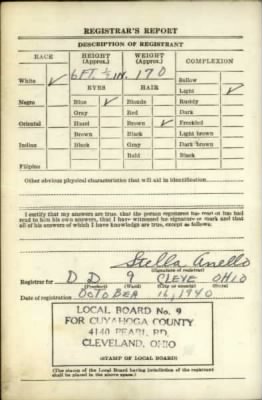 REGISTRAR'S REPORT
DESCRIPTION OF REGISTRANT
RACE HEIGHT (Approx.) WEIGHT (Approx.) COMPLEXION
White ✓ 6 FT. ½ IN. 170 Sallow
EYES HAIR Light ✓
Negro Blue ✓ Blonde Ruddy
Gray Red Dark
Oriental Hazel Brown ✓ Freckled
Brown Black Light brown
Indian Black Gray Dark brown
Bald Black
Filipino
Other obvious physical characteristics that will aid in identification
I certify that my answers are true; that the person registered has read or has had
read to him his own answers; that I have witnessed his signature or mark and that
all of his answers of which I have knowledge are true, except as follows:
Stella Anello
(Signature of registrar)
Registrar for D D 9 CLEVE OHIO
(Precinct) (Ward) (City or county) (State)
Date of registration OCTOBER 16, 1940
LOCAL BOARD No. 9
FOR CUYAHOGA COUNTY
4140 PEARL RD.
CLEVELAND, OHIO
(STAMP OF LOCAL BOARD)
(The stamp of the Local Board having jurisdiction of the registrant
shall be placed in the above space.)